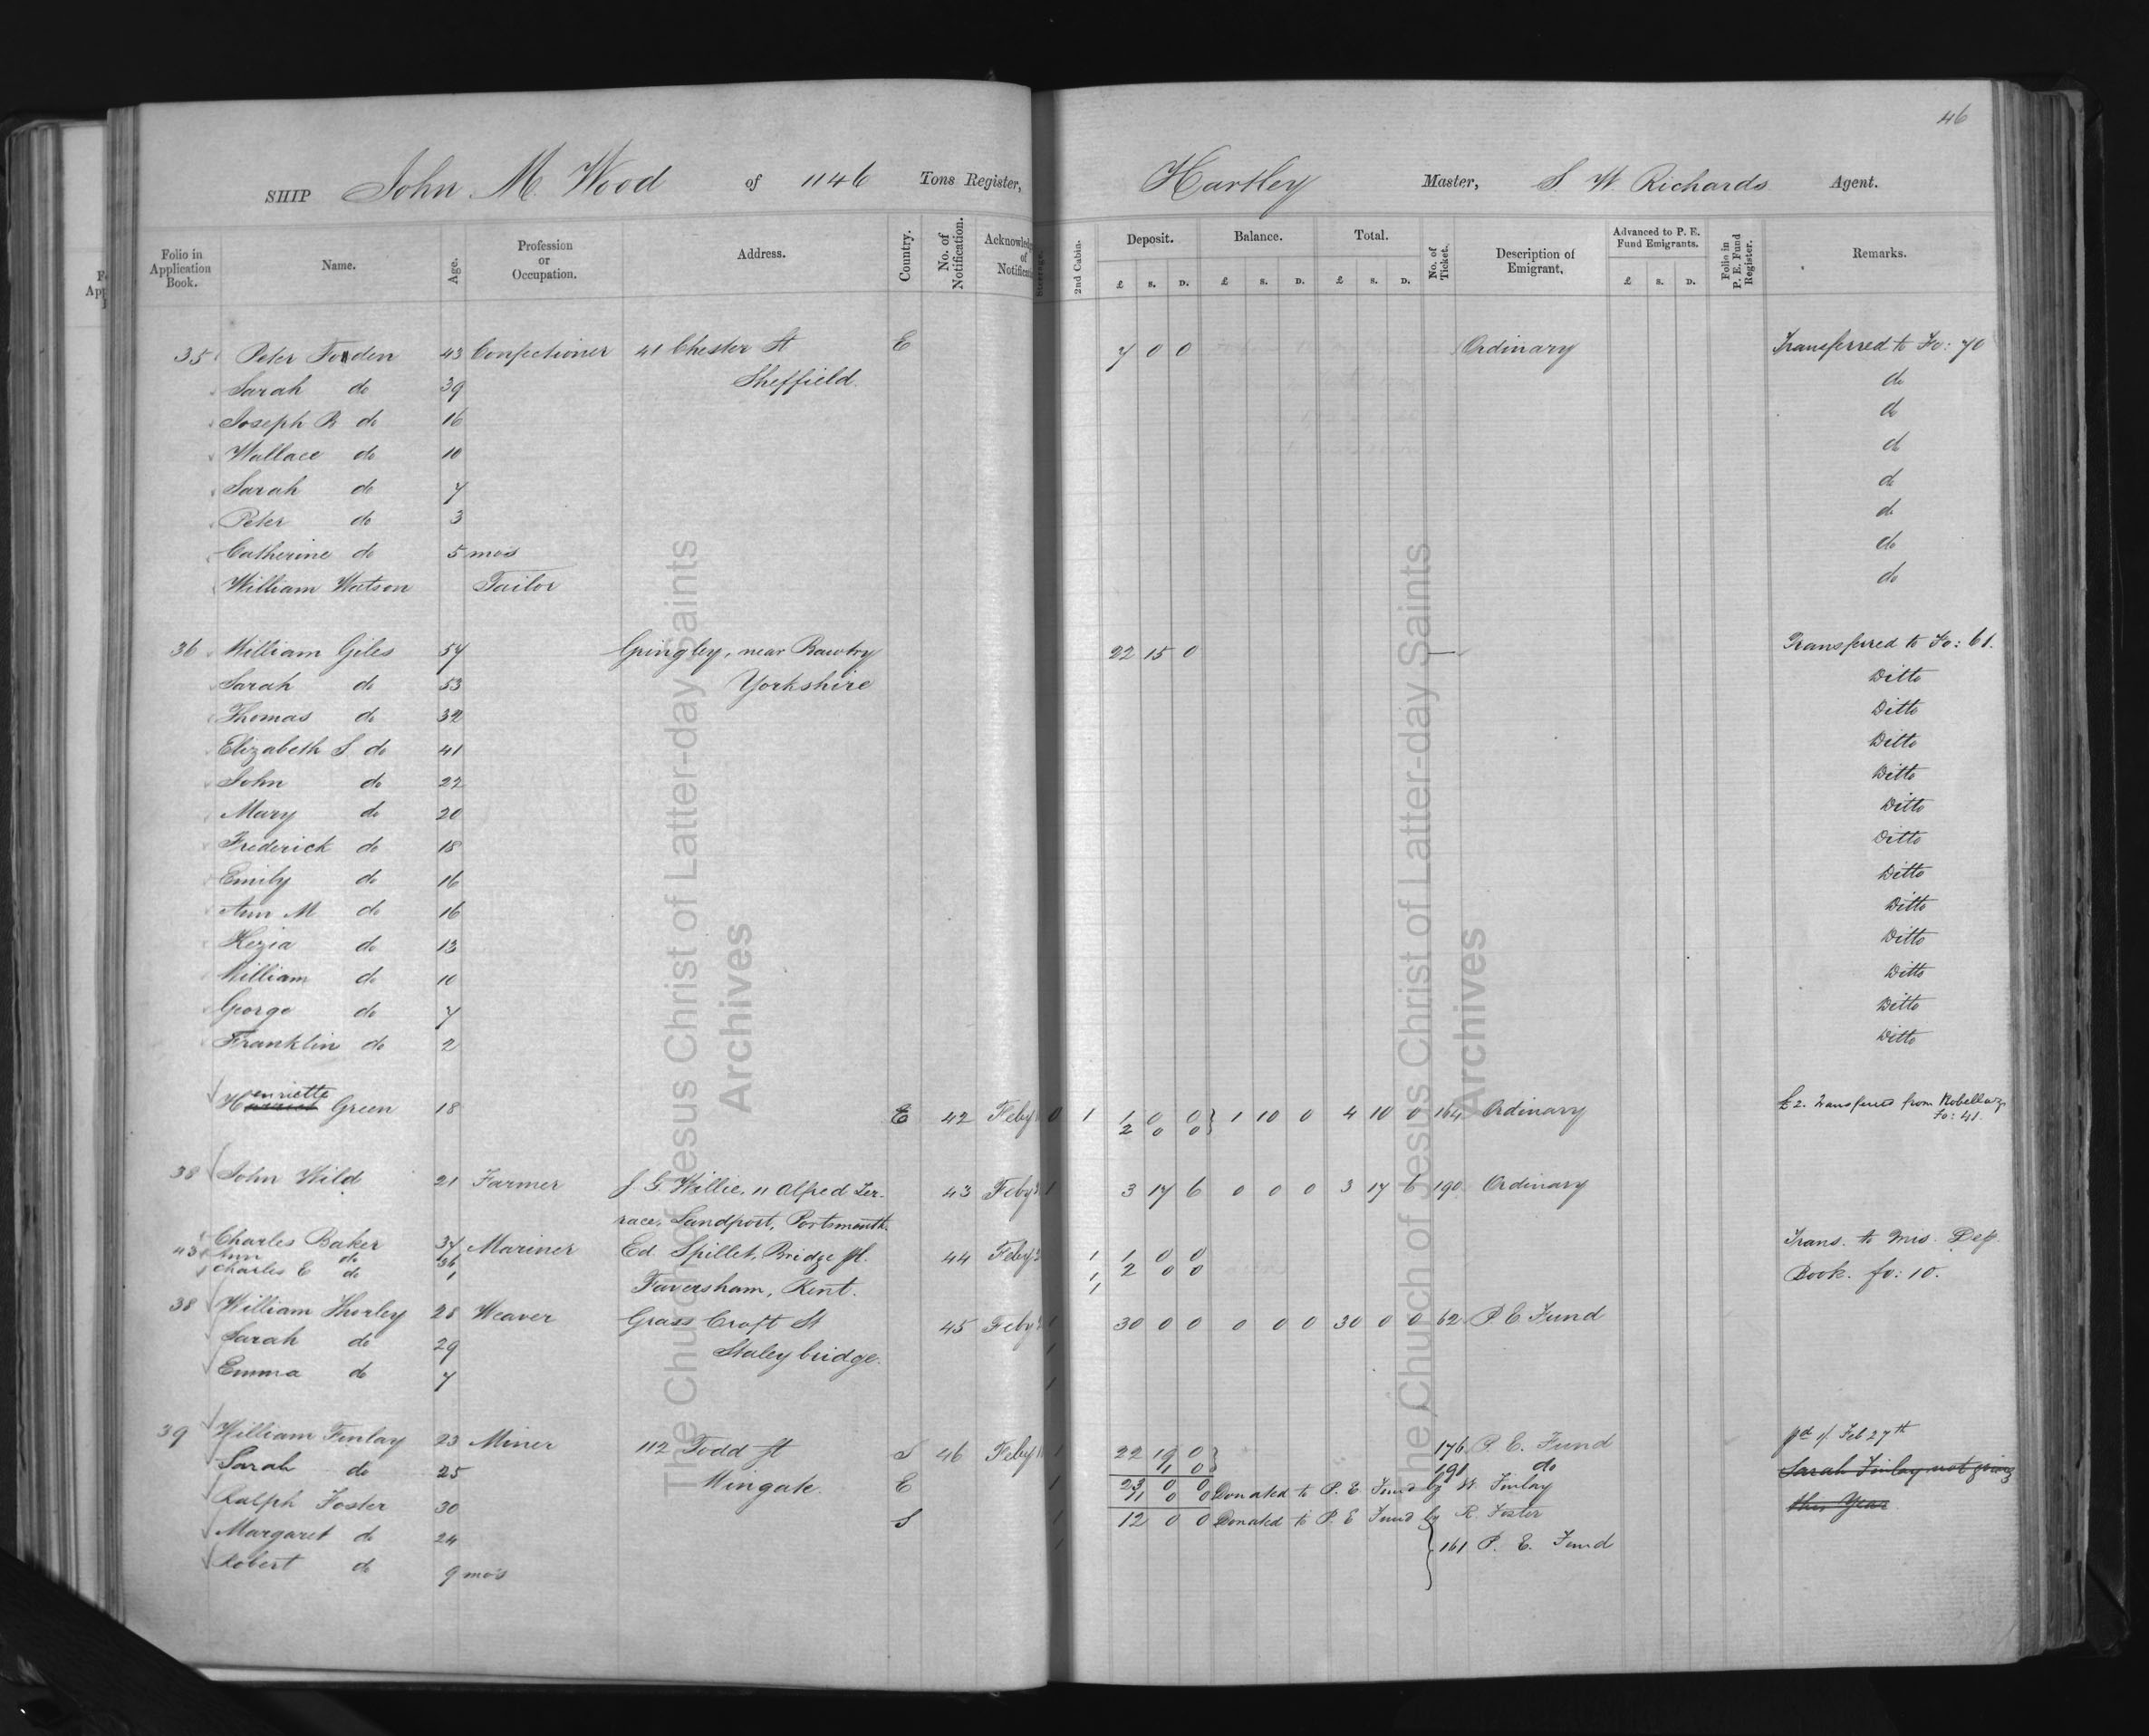 46
SHIP John M. Wood of 1146 Tons Register, Hartley Master, S. W. Richards Agent.
Folio in Application Book. Name. Age. Profession or Occupation. Address. Country. No. of Notification. Acknowledg of Notificati Steerage. 2nd Cabin. Deposit. Balance. Total. No. of Ticket. Description of Emigrant. Advanced to P. E. Fund Emigrants. Folio in P. E. Fund Register. Remarks.
£ s. D. £ s. D. £ s. D. £ s. D.
35 Peter Forden 43 Confectioner 41 Chester St E 7 0 0 Ordinary Transferred to Fo: 70
Sarah do 39 Sheffield. do
Joseph R do 16 do
Wallace do 10 do
Sarah do 7 do
Peter do 3 do
Catherine do 5 mos do
William Watson Tailor do
36 William Giles 54 Gringley, near Bawtry 22 15 0 Transferred to Fo: 61.
Sarah do 53 Yorkshire Ditto
Thomas do 32 Ditto
Elizabeth S. do 41 Ditto
John do 22 Ditto
Mary do 20 Ditto
Frederick do 18 Ditto
Emily do 16 Ditto
Ann M do 16 Ditto
Kezia do 13 Ditto
William do 10 Ditto
George do 7 Ditto
Franklin do 2 Ditto
Henriette Green 18 E 42 Feby 0 1 1 0 0 } 1 10 0 4 10 0 164 Ordinary £2. Transferred from
2 0 0 Fo: 41.
38 John Wild 21 Farmer J. G. Willie, 11 Alfred Ter- 43 Feby 1 3 17 6 0 0 0 3 17 6 190 Ordinary
race, Landport, Portsmouth.
Charles Baker 34 Mariner Ed. Spillet, Bridge St. 44 Feby 1 1 0 0 Trans. to Mis. Dep.
43 Ann do 36 1 2 0 0
Charles E do 1 Faversham, Kent. 1 Book. fo: 10.
38 William Thorley 28 Weaver Grass Croft St 45 Feby 1 30 0 0 0 0 0 30 0 0 62 P E Fund
Sarah do 29 Staleybridge. 1
Emma do 7 1
39 William Finlay 23 Miner 112 Todd St S 46 Feby 1 22 19 0 } 176 P. E. Fund pd Feb 27th
Sarah do 25 Wingate. E 1 1 0 191 do Sarah Finlay not going
23 0 0
Ralph Foster 30 S 1 11 0 0 Donated to P. E. Fund by W. Finlay this Year
Margaret do 24 1 12 0 0 Donated to P. E Fund by R. Foster
Robert do 9 mos 161 P. E. Fund
The Church of Jesus Christ of Latter-day Saints
Archives
The Church of Jesus Christ of Latter-day Saints
Archives